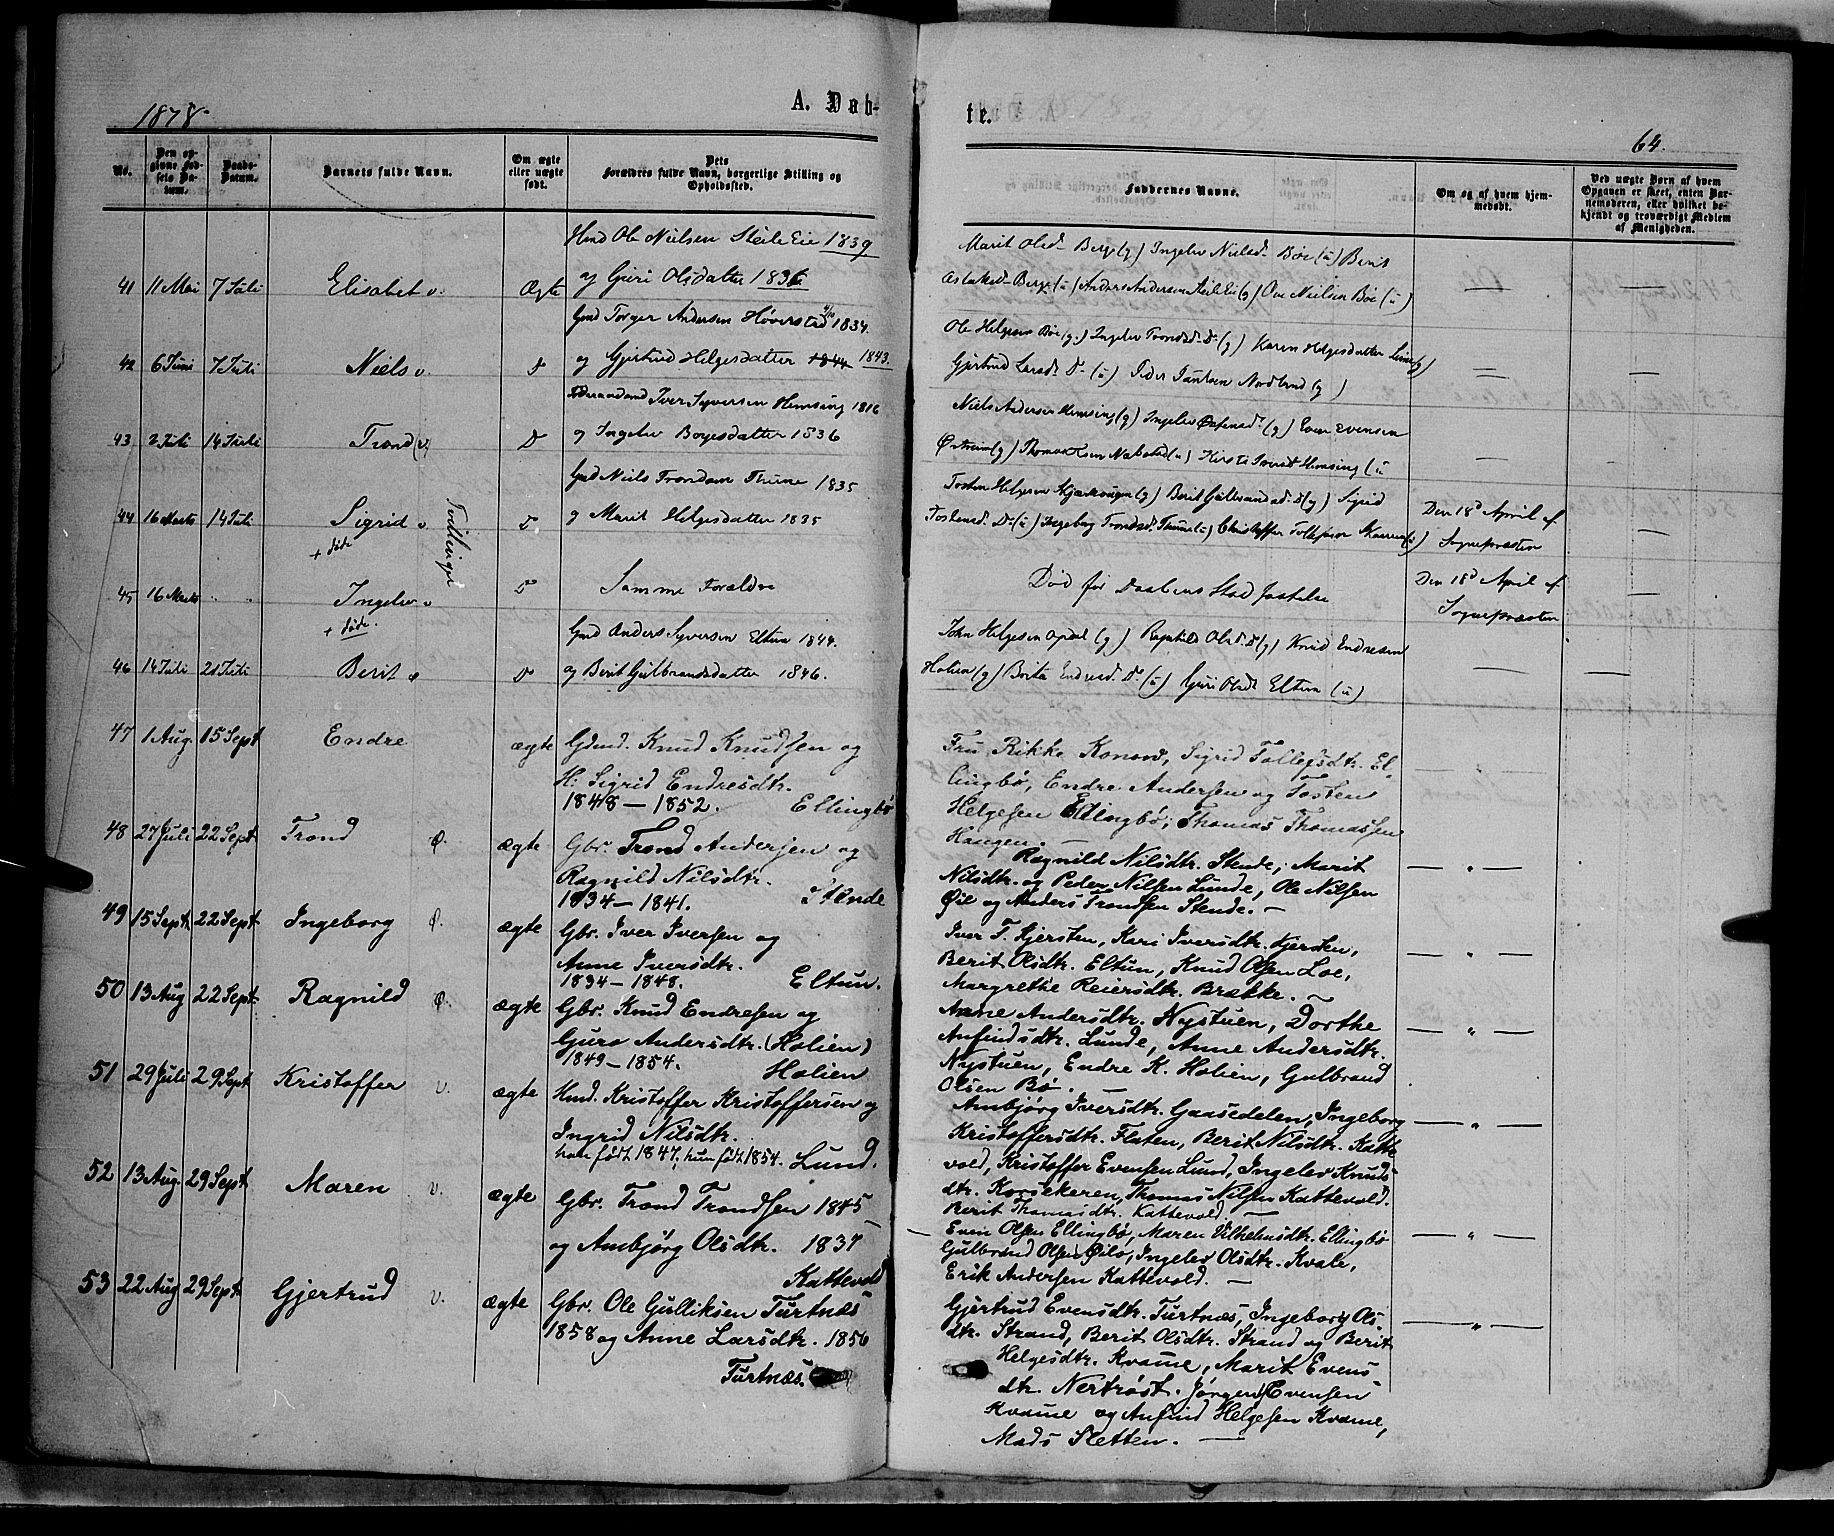 1878.
A. Døb-
te.
64.
No.
Den op-
givne Fød-
sels Da-
tum.
Daabs-
Datum.
Barnets fulde Navn.
Om ægte
eller uægte
født.
Dets
Forældres fulde Navn, borgerlige Stilling og
Opholdssted.
Faddernes Navne.
Om og af hvem hjem-
medøbt.
Ved uægte Børn af hvem
Opgaven er skeet, enten Bar-
nemoderen, eller hvilket be-
kjendt og troværdigt Medlem
af Menigheden.
Hmd Ole Nielsen Steile Eie 1839
41 11 Mai 7 Juli Elisabet v. Ægte og Guri Olsdatter 1836
Marit Olsd Berge (g) Ingelev Nielsd Bøe (u) Berit
Aslaksd Berge (u) Anders Andersen Steile Ei (g) Ole Nielsen Bøe (u)
Gmd Torger Andersen Høverstad 1834.
42 6 Juni 7 Juli Niels v. D og Gjertrud Helgesdatter 1844 1843.
Ole Helgesen Bøe (g.) Ingelev Trondsd. D (g) Karen Helgesdatter Lome (g)
Gjertrud Larsd D (u) Peder Nordland (g)
Iver Syversen Hemsing 1816
43 2 Juli 14 Juli Trond (v) D og Ingelev Boyesdatter 1836
Niels Andersen Hemsing (g) Ingelev (g) Even Evensen
Østrem (g) Thomas (u) Kirsti Iversd Hemsing (u
Gmd Niels Trondsen Thune 1835
44 16 Marts 14 Juli Sigrid v D og Marit Helgesdatter 1835
+ døde
Tvillinger
Tosten Helgesen (g) Berit Gulbrandsd. D (g) Sigrid
Tostensd. D (u) Ingebog Trondsd. Thune (u) Christoffer Tollefsen (u)
Den 18d April af
Sognepræsten
45 16 Marts " " Ingelev v D Samme Forældre
+ døde.
Død før Daabens Stadfæstelse
Den 18d April af
Sognepræsten
Gmd Anders Syversen Eltun 1844.
46 14 Juli 21 Juli Berit ø D og Berit Gulbrandsdatter 1846.
John Helgesen Opdal (g) Ragnhild Olsd. D (g) Knud Endresen
Holien (g) Berta Endresd. D (u) Guri Olsd Eltun (u)
47 1 Aug. 15 Sept Endre ægte Gdmd. Knud Knudsen og
H. Sigrid Endresdtr.
1848 — 1852. Ellingbø
Fru Rikke Konow, Sigrid Tollefsdtr. El-
lingbø, Endre Andersen og Tosten
Helgesen Ellingbø; Thomas Thomassen
Haugen. —
48 27 Juli 22 Sept Trond Ø. ægte Gbr. Trond Andersen og
Ragnild Nilsdtr.
1834 — 1841. Stende
Ragnild Nilsdtr. Stende; Marit
Nilsdtr. og Peder Nilsen Lunde, Ole Nilsen
Øie og Anders Trondsen Stende. —
49 15 Sept 22 Sept Ingeborg Ø. ægte Gbr. Iver Iversen og
Anne Iversdtr.
1834 — 1848. Eltun.
Iver T. Kjersten, Kari Iversdtr. Kjersten,
Berit Olsdtr. Eltun, Knud Olsen Loe,
Margrethe Reiersdtr. Brække. —
50 13 Aug 22 Sept. Ragnild Ø. ægte Gbr. Knud Endresen og
Guro Andersdtr. (Holien)
1849 — 1854. Holien
Anne Andersdtr. Nystuen, Dorthe
Anfindsdtr. Lunde, Anne Andersdtr.
Nystuen, Endre K. Holien, Gulbrand
Olsen Bø. —
51 29 Juli 29 Sept Kristoffer v. ægte Hmd. Kristoffer Kristoffersen og
Ingrid Nilsdtr.
han født 1847, hun født 1854. Lund.
Ambjørg Iversdtr. Gaasedelen, Ingeborg
Kristoffersdtr. Flaten, Berit Nilsdtr. Katte
vold, Kristoffer Evensen Lund, Ingelev Knuds
dtr. Korsekeren, Thomas Nilsen Kattevold.
Berit Thomasdtr. Kattevold. —
52 13 Aug. 29 Sept Maren v. ægte Gbr. Trond Trondsen 1845
og Ambjørg Olsdtr. 1837
Kattevold
Even Olsen Ellingbø, Maren Vilhelmsdtr. Ellingbø
Gulbrand Olsen Øilo, Ingelev Olsdtr. Kvale,
Erik Andersen Kattevold. —
53 22 Aug 29 Sept. Gjertrud v. ægte Gbr. Ole Gulliksen Turtnæs
1858 og Anne Larsdtr. 1856
Turtnæs.
Gjertrud Evensdtr. Turtnæs, Ingeborg Ols-
dtr. Strand, Berit Olsdtr. Strand og Berit
Helgesdtr. Kvame, Marit Evens-
dtr. Nertrøst. Jørgen Evensen
Kvame og Anfind Helgesen Kvame,
Mads Sletten. —